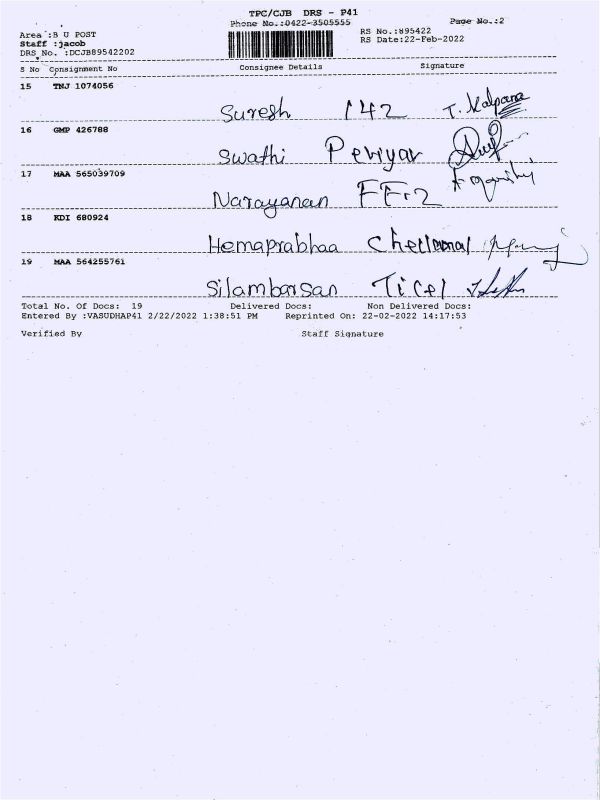 TPC/CJB DRS - P41
Phone No.:0422-3505555
Page No.:2
Area :B U POST
Staff :jacob
DRS No. :DCJB89542202
RS No.:895422
RS Date:22-Feb-2022
S No Consignment No Consignee Details Signature
15 TNJ 1074056
Suresh 142 T. Kalpana
16 GMP 426788
Swathi Periyar
17 MAA 565039709
Narayanan FF-2
18 KDI 680924
Hemaprabhaa Chellammal
19 MAA 564255761
Silambarsan Ticel
Total No. Of Docs: 19 Delivered Docs: Non Delivered Docs:
Entered By :VASUDHAP41 2/22/2022 1:38:51 PM Reprinted On: 22-02-2022 14:17:53
Verified By Staff Signature